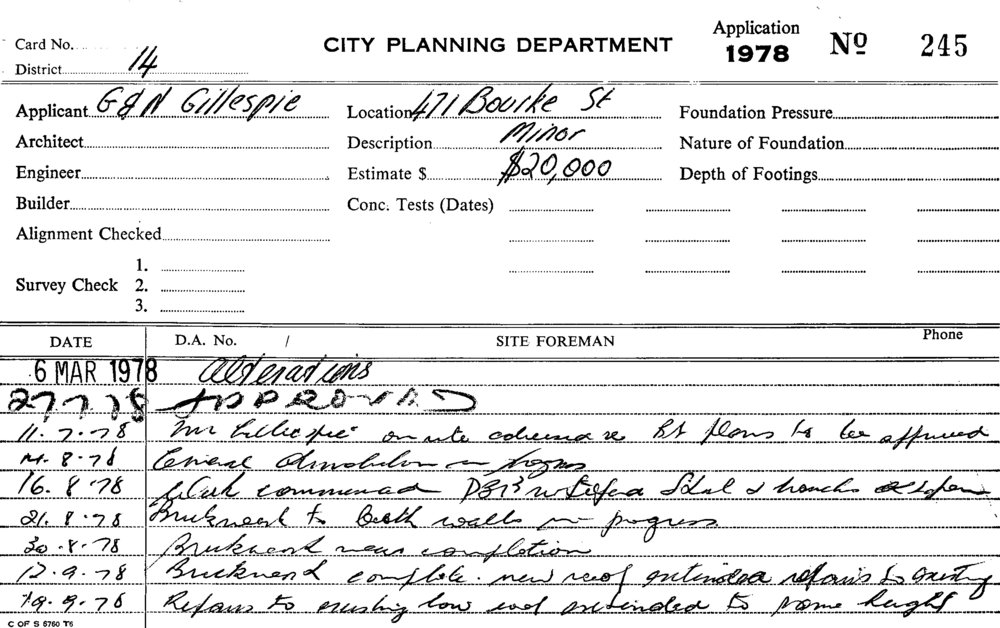 Card No.
CITY PLANNING DEPARTMENT
Application 1978 Nº 245
District 14
Applicant G & N Gillespie
Location 471 Bourke St
Foundation Pressure
Architect
Description Minor
Nature of Foundation
Engineer
Estimate $ $20,000
Depth of Footings
Builder
Conc. Tests (Dates)
Alignment Checked
Survey Check
1.
2.
3.
DATE
D.A. No. /
SITE FOREMAN
Phone
6 MAR 1978 Alterations
27.7.78 APPROVED
11.7.78 Mr Gillespie on site plans to be approved
14.8.78 General Demolition in progress
16.8.78 commenced
21.8.78 Brickwork to both walls in progress
30.8.78 Brickwork near completion
12.9.78 Brickwork complete. new roof extended repairs to existing
19.9.78 Repairs to existing low roof extended to same height
C OF S 5760 T6